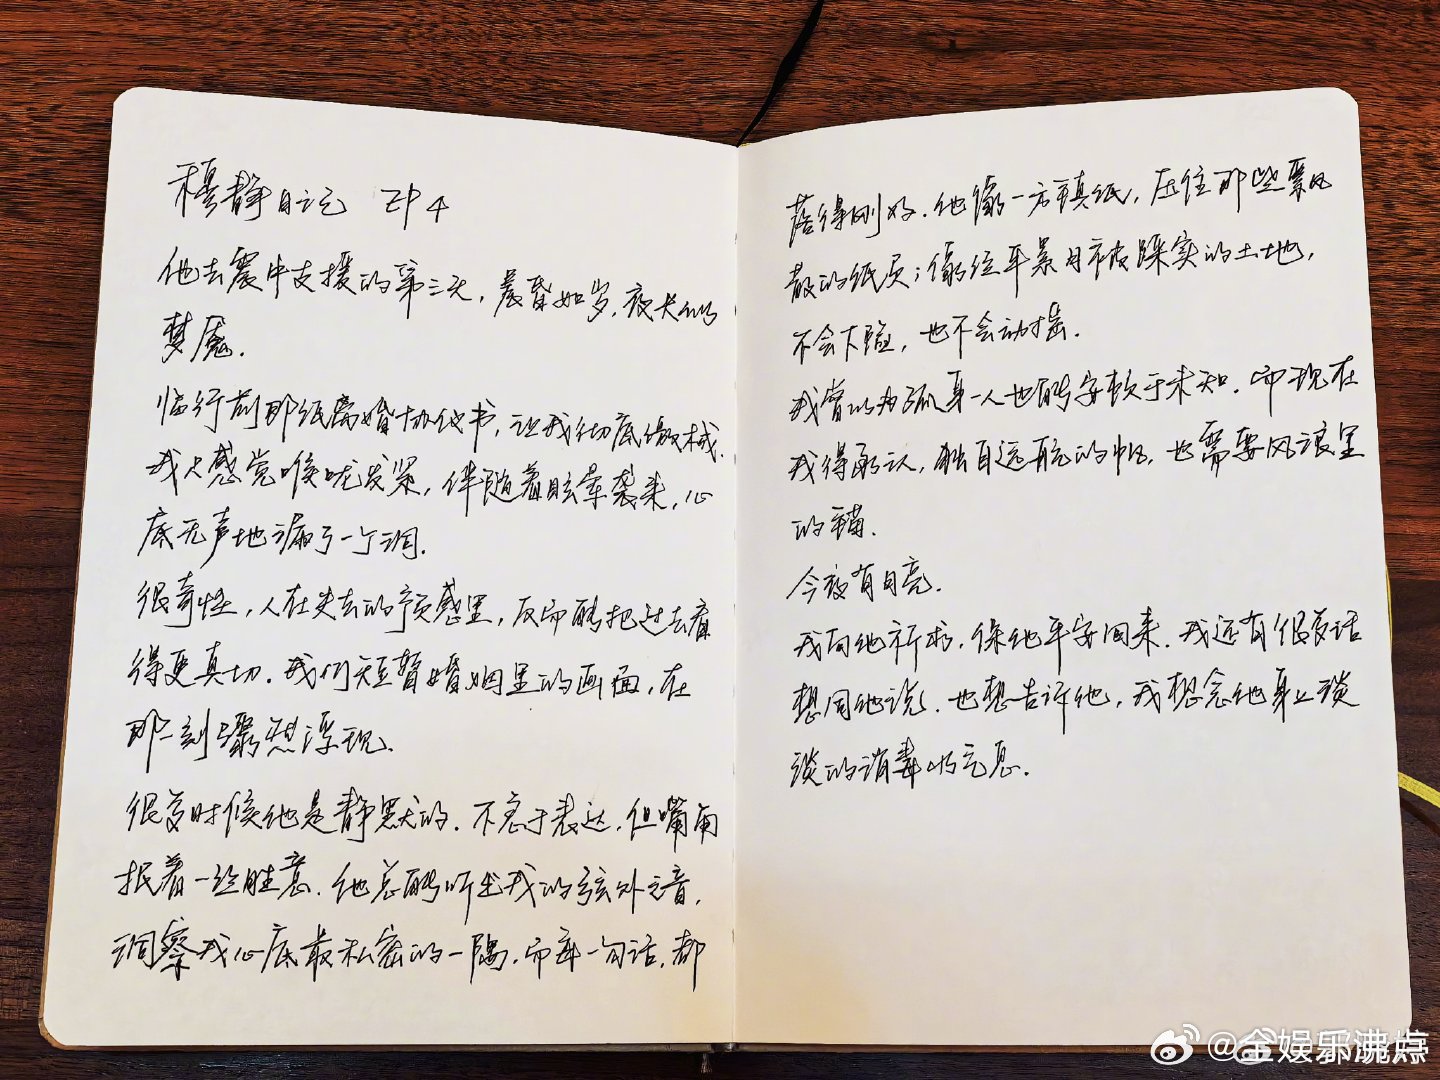 穆静日记 EP 4
他去震中支援的第三天，晨昏如岁，夜长似
梦魇.
临行前那纸离婚协议书，让我彻底缴械.
我只感觉喉咙发紧，伴随着眩晕袭来，心
底无声地漏了一个洞.
很奇怪，人在失去的预感里，反而能把过去看
得更真切. 我们短暂婚姻里的画面，在
那一刻骤然浮现.
很多时候他是静默的. 不急于表达，但嘴角
抿着一丝胜意. 他总能听出我的弦外之音，
洞察我心底最私密的一隅. 而每一句话，都
落得刚好. 他像一方镇纸，压住那些飘
散的纸页；像经年累月被踩实的土地，
不会下陷，也不会动摇.
我曾以为孤身一人也能安于未知. 而现在
我得承认，独自远航的帆，也需要风浪里
的锚.
今夜有月亮.
我向他祈求，保他平安回来. 我还有很多话
想同他说. 也想告诉他，我想念他身上淡
淡的消毒水气息.
@金娱乐沸点